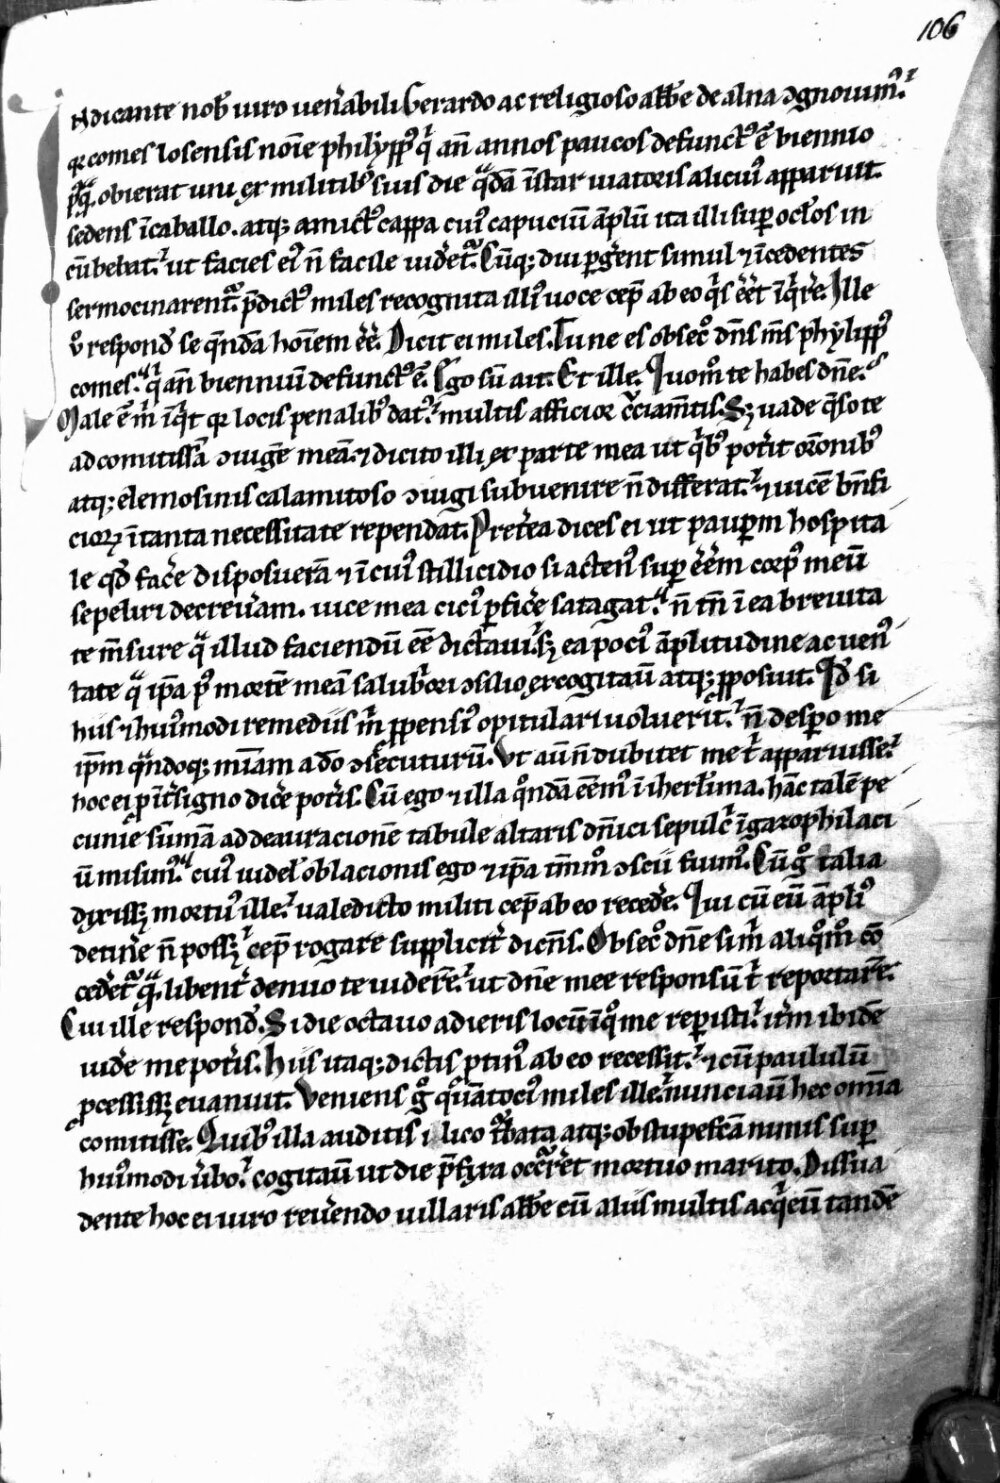 106
Indicante nob̄ uiro uen̄abili Gerardo ac religioso abb̄e de alna ꝯgnouim᷒.
qr comes losensis noīe philypp᷒ q̇ an̄ annos paucos defunct᷒ ē biennio
pꝰqͣ obierat uni ex militib᷒ suis die qͣdā īstar uiatoris alicui᷒ apparuit.
sedens ī caballo. atq; amict᷒ cappa cui᷒ capuciū āplū ita illi sup oc̄los in
cūbebat. ut facies ei᷒ n̄ facile uider̄etͣ. Cūq; dui perḡent simul ⁊ īcedentes
sermocinarentͣ. p̄dict᷒ miles recognita illi᷒ uoce cep̄ ab eo qͥs ēet īqͥrer̄e. Ille
ů respond̄ se quēdā hoīem ēe. Dicit ei miles. Tu ne es obsec̊ dn̄s m̄s phylypp᷒
comes. q̇ an̄ bienniū defunct᷒ ē. Ego sū ait. Et ille. Quom̊ te habes dn̄e.
Male ē m̄ īqͥt qr locis penalib᷒ dat᷒. multis afficior c̄ciam̄tis. Sꝫ uade q̄so te
ad comitissā ꝯiugē meā. ⁊ dicito illi ex parte mea ut qͥb᷒ pot̄it or̄onib᷒
atq; elemosinis calamitoso ꝯiugi subuenire n̄ differat. ⁊ uicē bn̄fi
cioꝝ ī tanta necessitate rependat. Pret̄ea dices ei ut paupm hospita
le qd̄ fac̄e disposuerā ⁊ ī cui᷒ stillicidio si acten᷒ sup ēem corp᷒ meū
sepeliri decreu̅am. uice mea cici᷒ pfic̄e satagat. n̄ tn̄ ī ea breuita
te m̄sure qͣ illud faciendū ēe dictaui. sꝫ ea poci᷒ āplitudine ac uen᷒
tate qͣ ip̄a p᷒ mortē meā salubͥori ꝯsilio excogitauit atq; pposuit. Qd̄ si
hiis ⁊ hui᷒modi remediis m̄ ppensi᷒ opitulari uoluerit. n̄ despo me
ip̄m qͣndoq; mīam a dō ꝯsecuturū. Vt aū n̄ dubitet me t̄ apparuisse.
hoc ei p īt̄signo dic̄e pot̄is. Cū ego ⁊ illa qͦndā ēem᷒ ī iherl̄ima. hāc talē pe
cunie sūmā ad deauracionē tabule altaris dn̄ici sepulc̄ ī gazophilaci
ū misim᷒. cui᷒ uidel̄ oblacionis ego ⁊ ip̄a tm̄m̊ ꝯscii fuim᷒. Cū g̊ talia
dixissꝫ mortu᷒ ille. ualedicto militi cep̄ ab eo reced̄e. Qui cū eū āpli᷒
detin̄e n̄ possꝫ cep̄ rogare supplicit̄ dicn̄s. Obsec̊ dn̄e si m̄ aliqͦm̊ cō
ced̄etͣ qͣ libent̄ denuo te uider̄e. ut dn̄e mee responsū t̄ reportar̄e.
Cui ille respond̄. Si die octauo adieris locū ī qͦ me repisti. it̄m ibidē
uid̄e me pot̄is. Hiis itaq; dictis ptin᷒ ab eo recessit. ⁊ cū paululū
pcessissꝫ euanuit. Veniens g̊ qͣntoci᷒ miles ille. nunciauit hec omīa
comitisse. Quib᷒ illa auditis ilico t᷒bata atq; obstupefcā nimis sup
hui᷒modi ūbo. cogitauit ut die p̄fixa occ̄rret mortuo marito. Dissua
dente hoc ei uiro reu̅endo uillaris abb̄e cū aliis multis acqͥeuit tandē